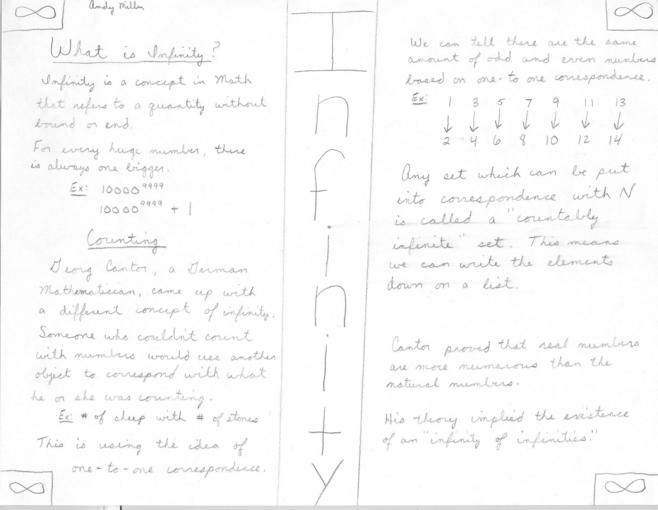 Andy Miller
What is Infinity?
Infinity is a concept in Math
that refers to a quantity without
bound or end.
For every huge number, there
is always one bigger.
Ex: 10000⁹⁹⁹⁹
10000⁹⁹⁹⁹ + 1
Counting
Georg Cantor, a German
Mathematician, came up with
a different concept of infinity.
Someone who couldn't count
with numbers would use another
object to correspond with what
he or she was counting.
Ex: # of sheep with # of stones
This is using the idea of
one-to-one correspondence.
Infinity
We can tell there are the same
amount of odd and even numbers
based on one-to one correspondence.
Ex: 1 3 5 7 9 11 13
↓ ↓ ↓ ↓ ↓ ↓ ↓
2 4 6 8 10 12 14
Any set which can be put
into correspondence with N
is called a "countably
infinite" set. This means
we can write the elements
down on a list.
Cantor proved that real numbers
are more numerous than the
natural numbers.
His theory implied the existence
of an "infinity of infinities."